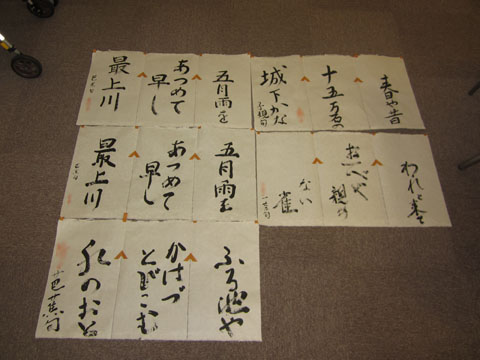 春や昔
十五万石の
城下かな
子規句
五月雨を
あつめて
早し
最上川
芭蕉句
われと来て
親の
ない
雀
一茶句
五月雨を
あつめて
早し
最上川
芭蕉句
ふる池や
かはづ
とびこむ
水のおと
芭蕉句